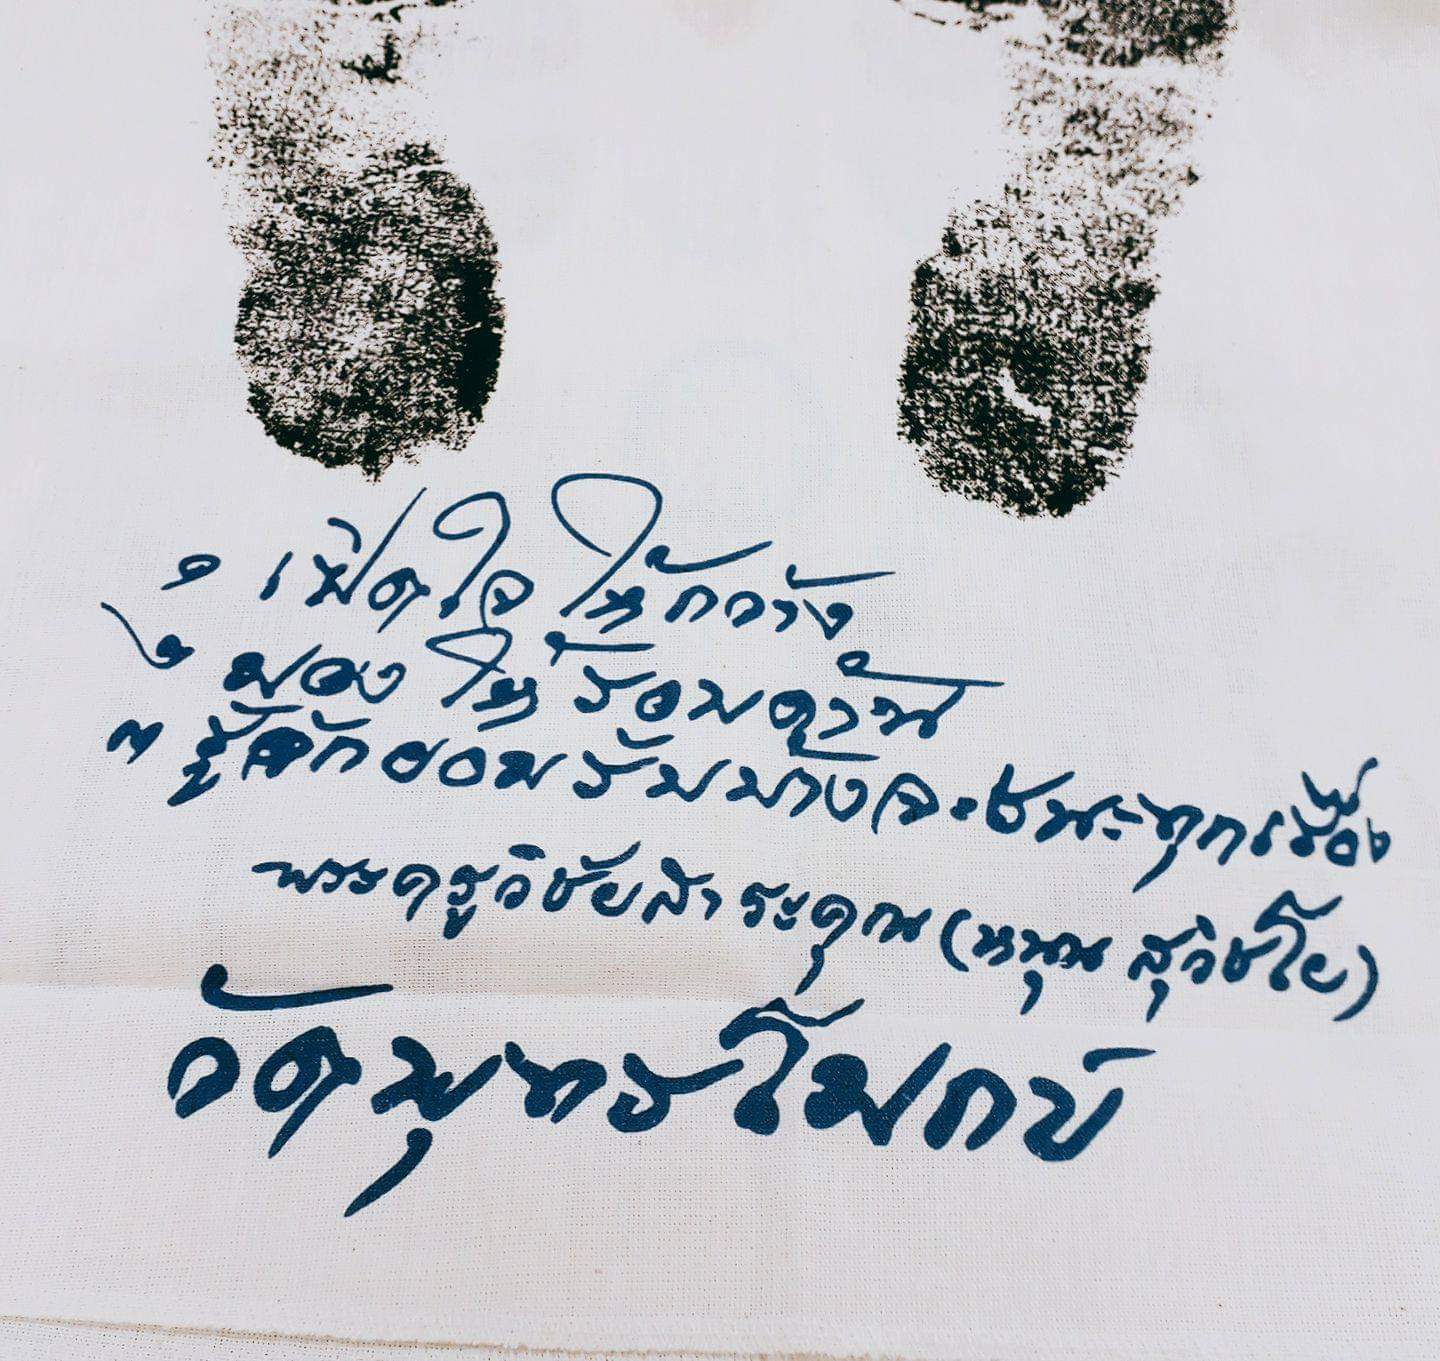 ๑ เปิดใจให้กว้าง
๒ มองให้รอบด้าน
๓ รู้จักยอมรับบ้างจะชนะทุกเรื่อง
พระครูวิชัยสาระคุณ (หนุน สุวิชโย)
วัดพุทธโมกข์